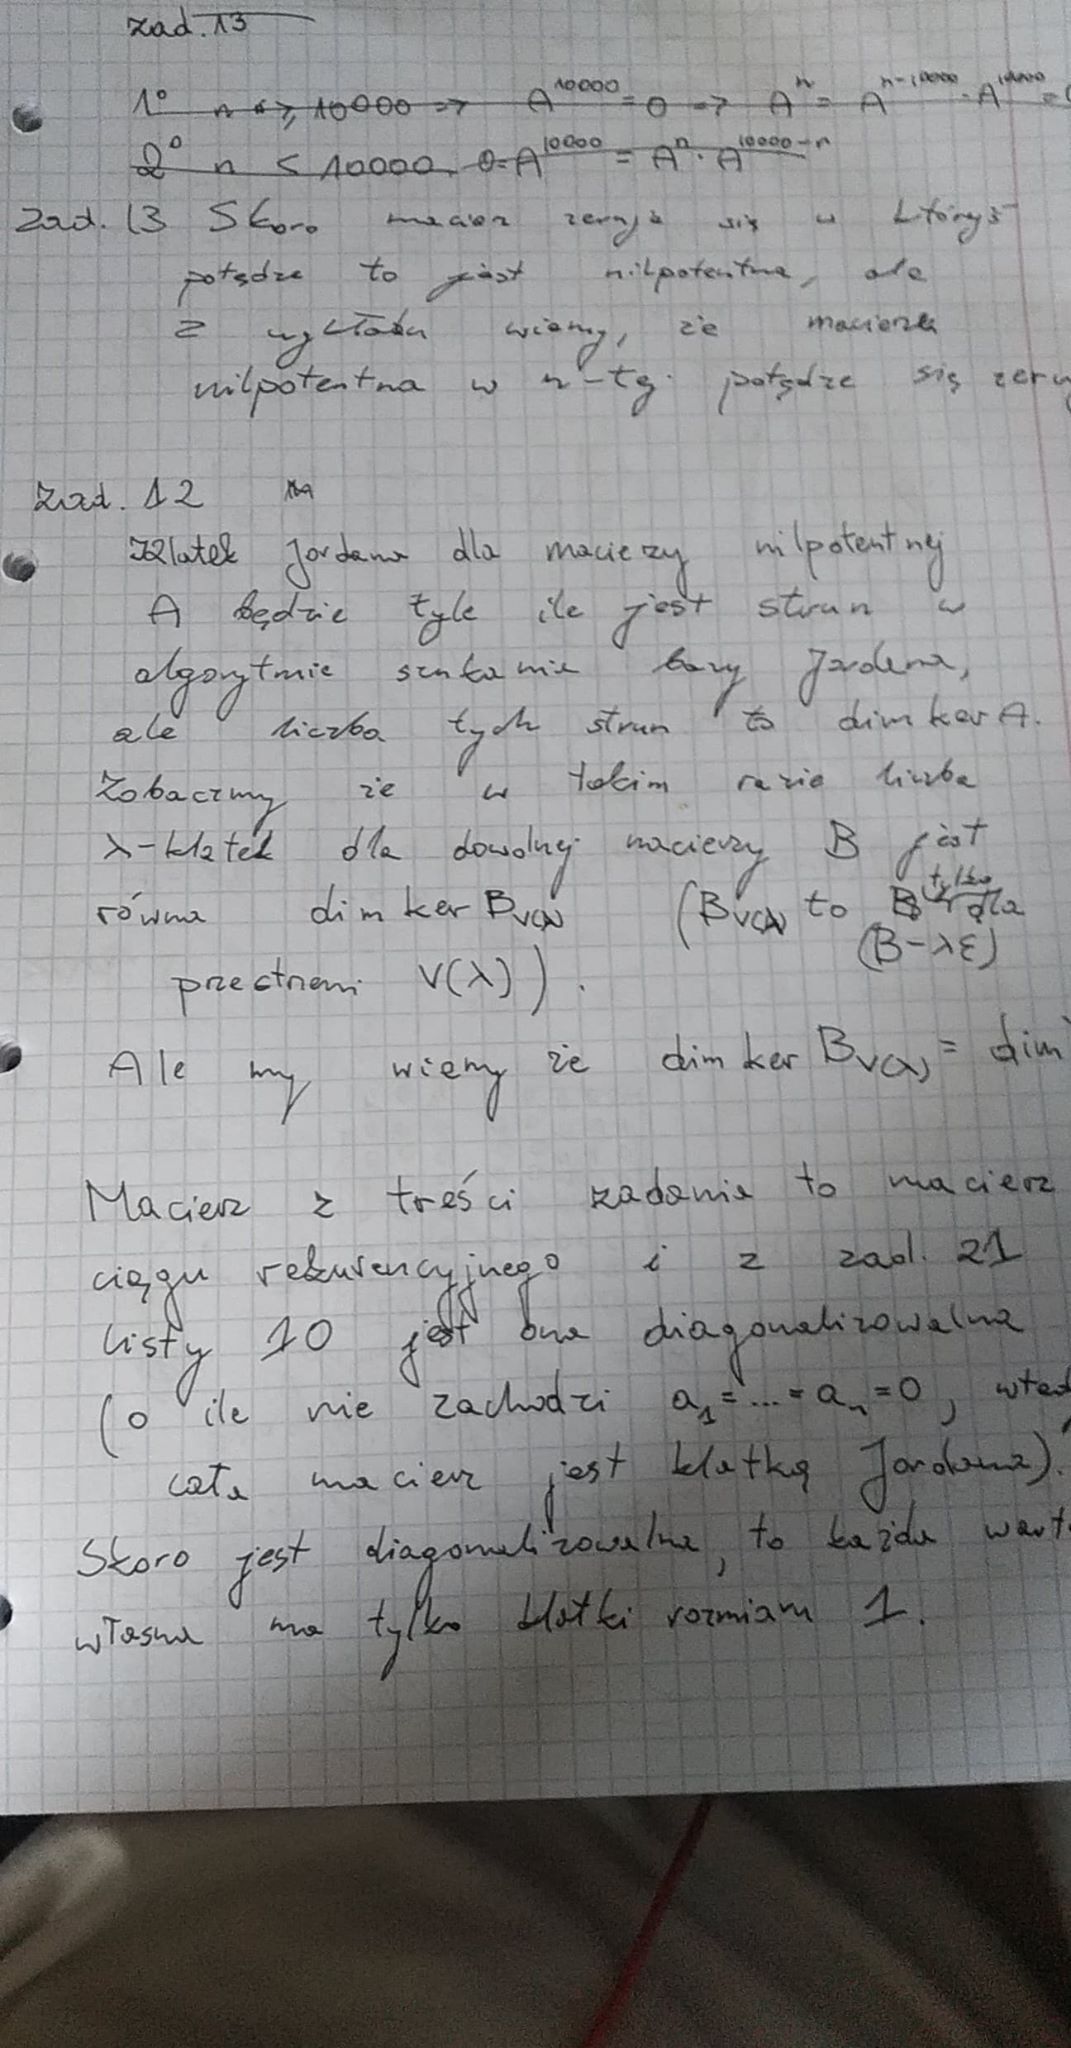 zad. 13
1° n ≥ 10000 => A^10000 = 0 => A^n = A^(n-10000) · A^10000 =
2° n < 10000. 0 = A^10000 = A^n · A^(10000-n)
zad. 13 Skoro macierz zeruje się w którejś
potędze to jest nilpotentna, ale
z wykładu wiemy, że macierz
nilpotentna w n-tej potędze się zeru
Zad. 12
Klatek Jordana dla macierzy nilpotentnej
A będzie tyle ile jest strun w
algorytmie szukania bazy Jordana,
ale liczba tych strun to dim ker A.
Zobaczmy że w takim razie liczba
λ-klatek dla dowolnej macierzy B jest
równa dim ker B_V(λ) (B_V(λ) to tylko dla
(B-λE)
przestrzeni V(λ)).
Ale my wiemy że dim ker B_V(λ) = dim
Macierz z treści zadania to macierz
ciągu rekurencyjnego i z zad. 21
listy 10 jest ona diagonalizowalna
(o ile nie zachodzi a_1 = ... = a_n = 0, wted
cała macierz jest klatką Jordana).
Skoro jest diagonalizowalna, to każda wart
własna ma tylko klatki rozmiaru 1.